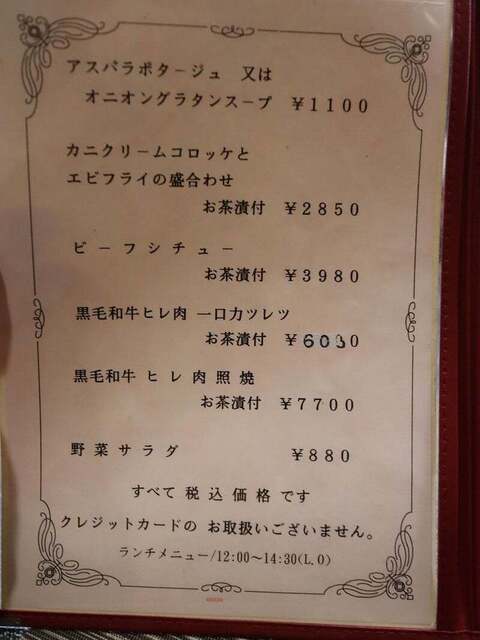 アスパラポタージュ 又は
オニオングラタンスープ ￥1100
カニクリームコロッケと
エビフライの盛合わせ
お茶漬付 ￥2850
ビーフシチュー
お茶漬付 ￥3980
黒毛和牛ヒレ肉 一口カツレツ
お茶漬付 ￥6030
黒毛和牛 ヒレ肉照焼
お茶漬付 ￥7700
野菜サラダ ￥880
すべて 税込価格 です
クレジットカードの お取扱いございません。
ランチメニュー/12:00～14:30(L.O)